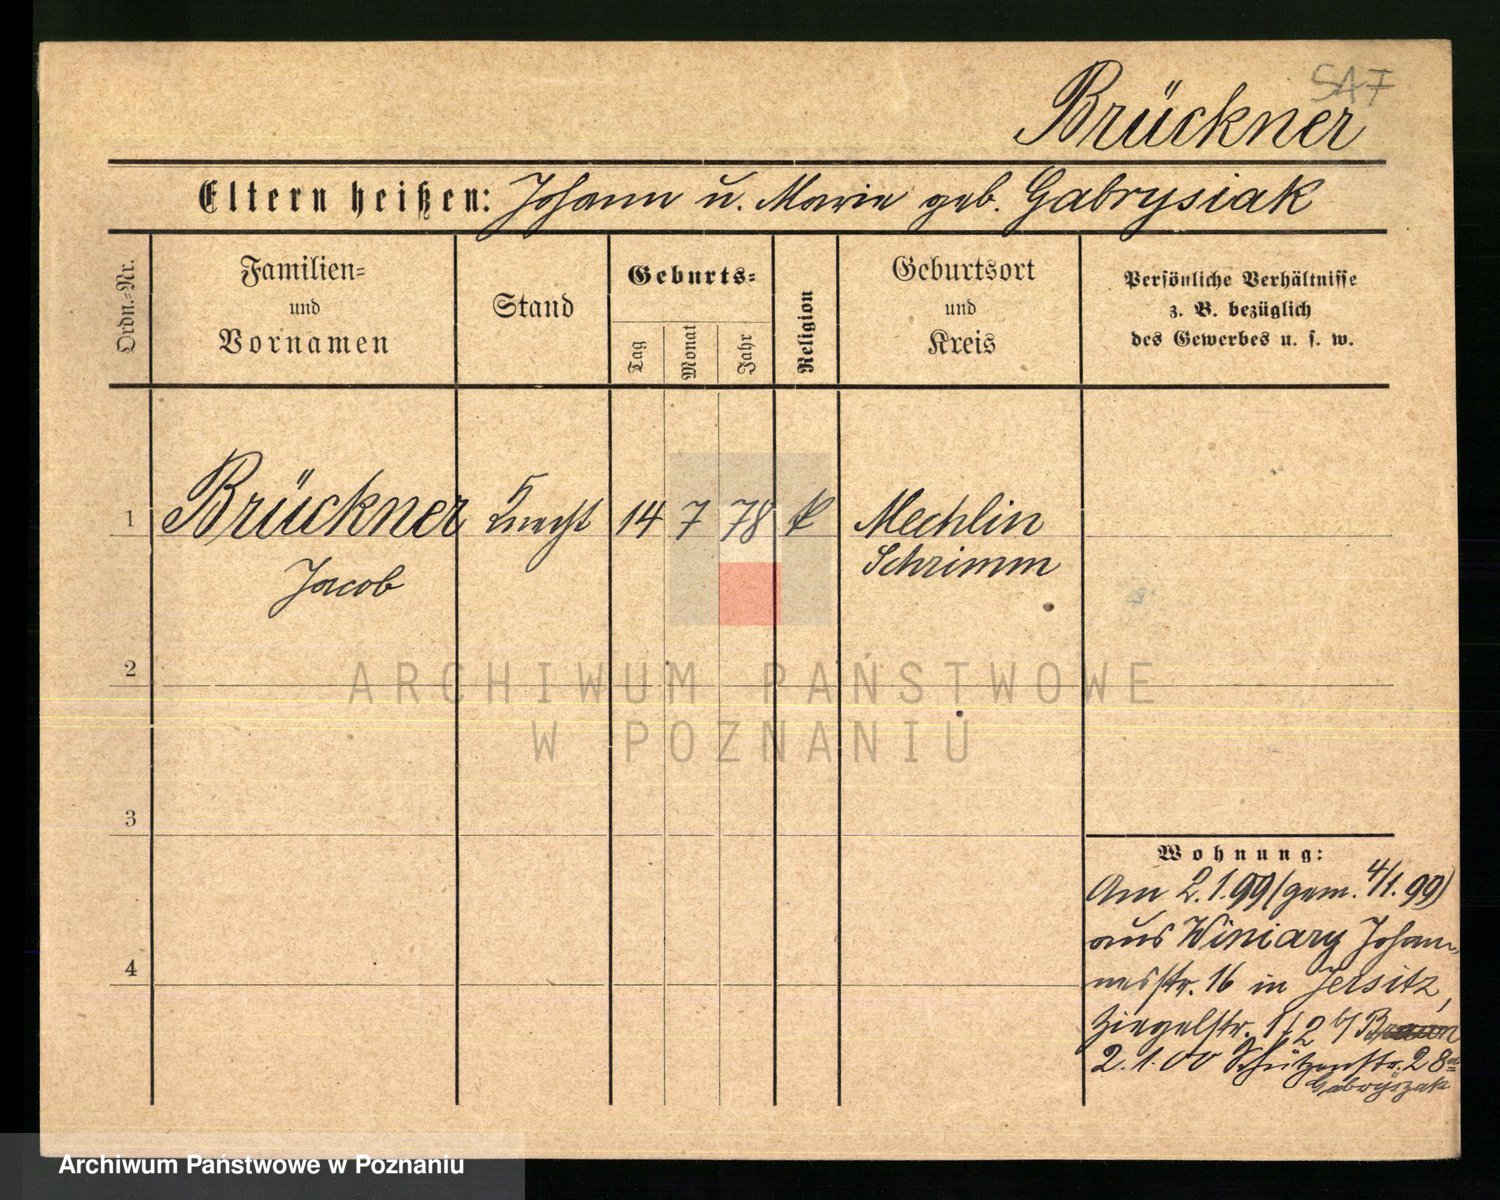 SA7
Brückner
Eltern heißen: Johann u. Marie geb. Gabrysiak
Ordn.-Nr.
Familien-
und
Vornamen
Stand
Geburts-
Tag
Monat
Jahr
Religion
Geburtsort
und
Kreis
Persönliche Verhältnisse
z. B. bezüglich
des Gewerbes u. s. w.
1 Brückner Knecht 14 7 78 k Mechlin
Jacob Schrimm
2
3
4
Wohnung:
Am 2.1.99 (gem. 4/1.99)
aus Winiary Johan-
nesstr. 16 in Jersitz,
Ziegelstr. 1/2 b/ Braun
2.1.00 Schützenstr. 28a
Gabryszak
ARCHIWUM PAŃSTWOWE
W POZNANIU
Archiwum Państwowe w Poznaniu